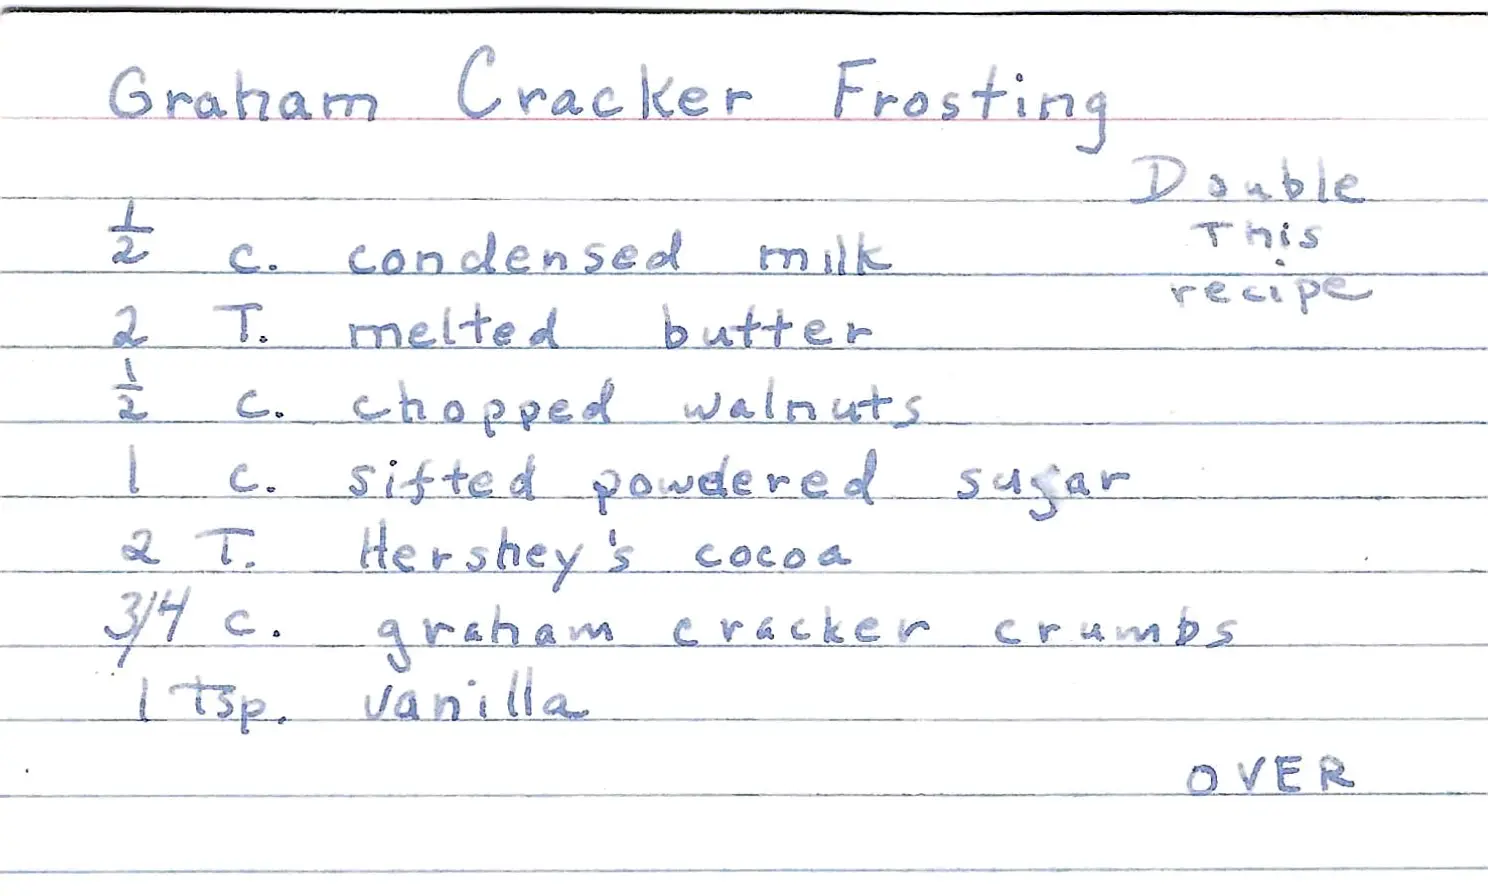 Graham Cracker Frosting
Double
This
recipe
1/2 c. condensed milk
2 T. melted butter
1/2 c. chopped walnuts
1 c. sifted powdered sugar
2 T. Hershey's cocoa
3/4 c. graham cracker crumbs
1 Tsp. vanilla
OVER